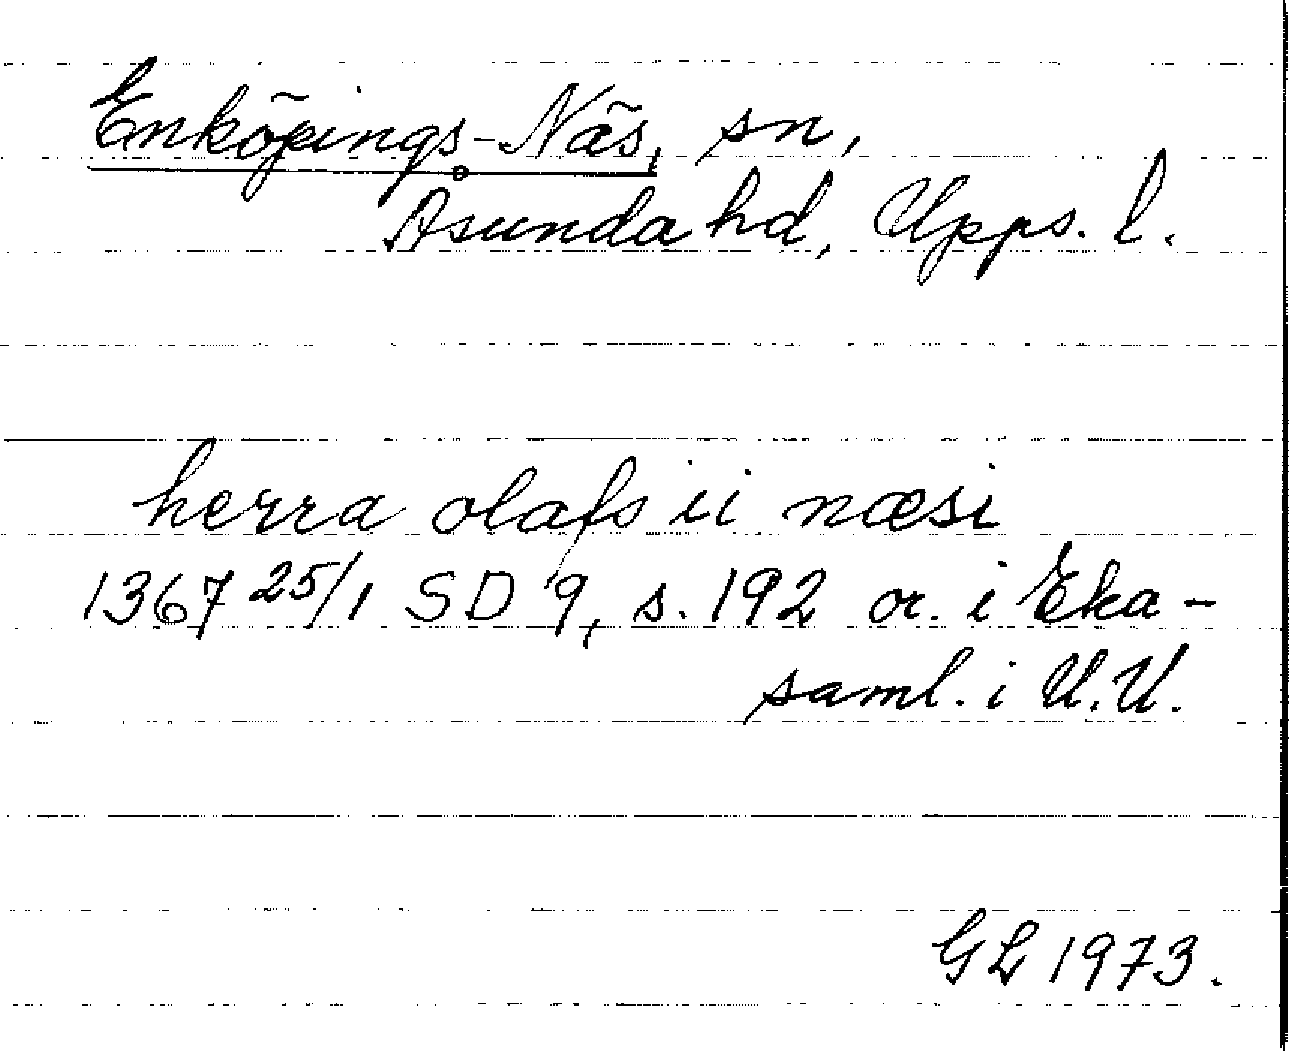 Enköpings-Näs, sn,
Åsunda hd, Upps. l.
herra olafs ii næsi
1367 25/1 SD 9, s. 192 or. i Eka-
saml. i U.U.
GL 1973.